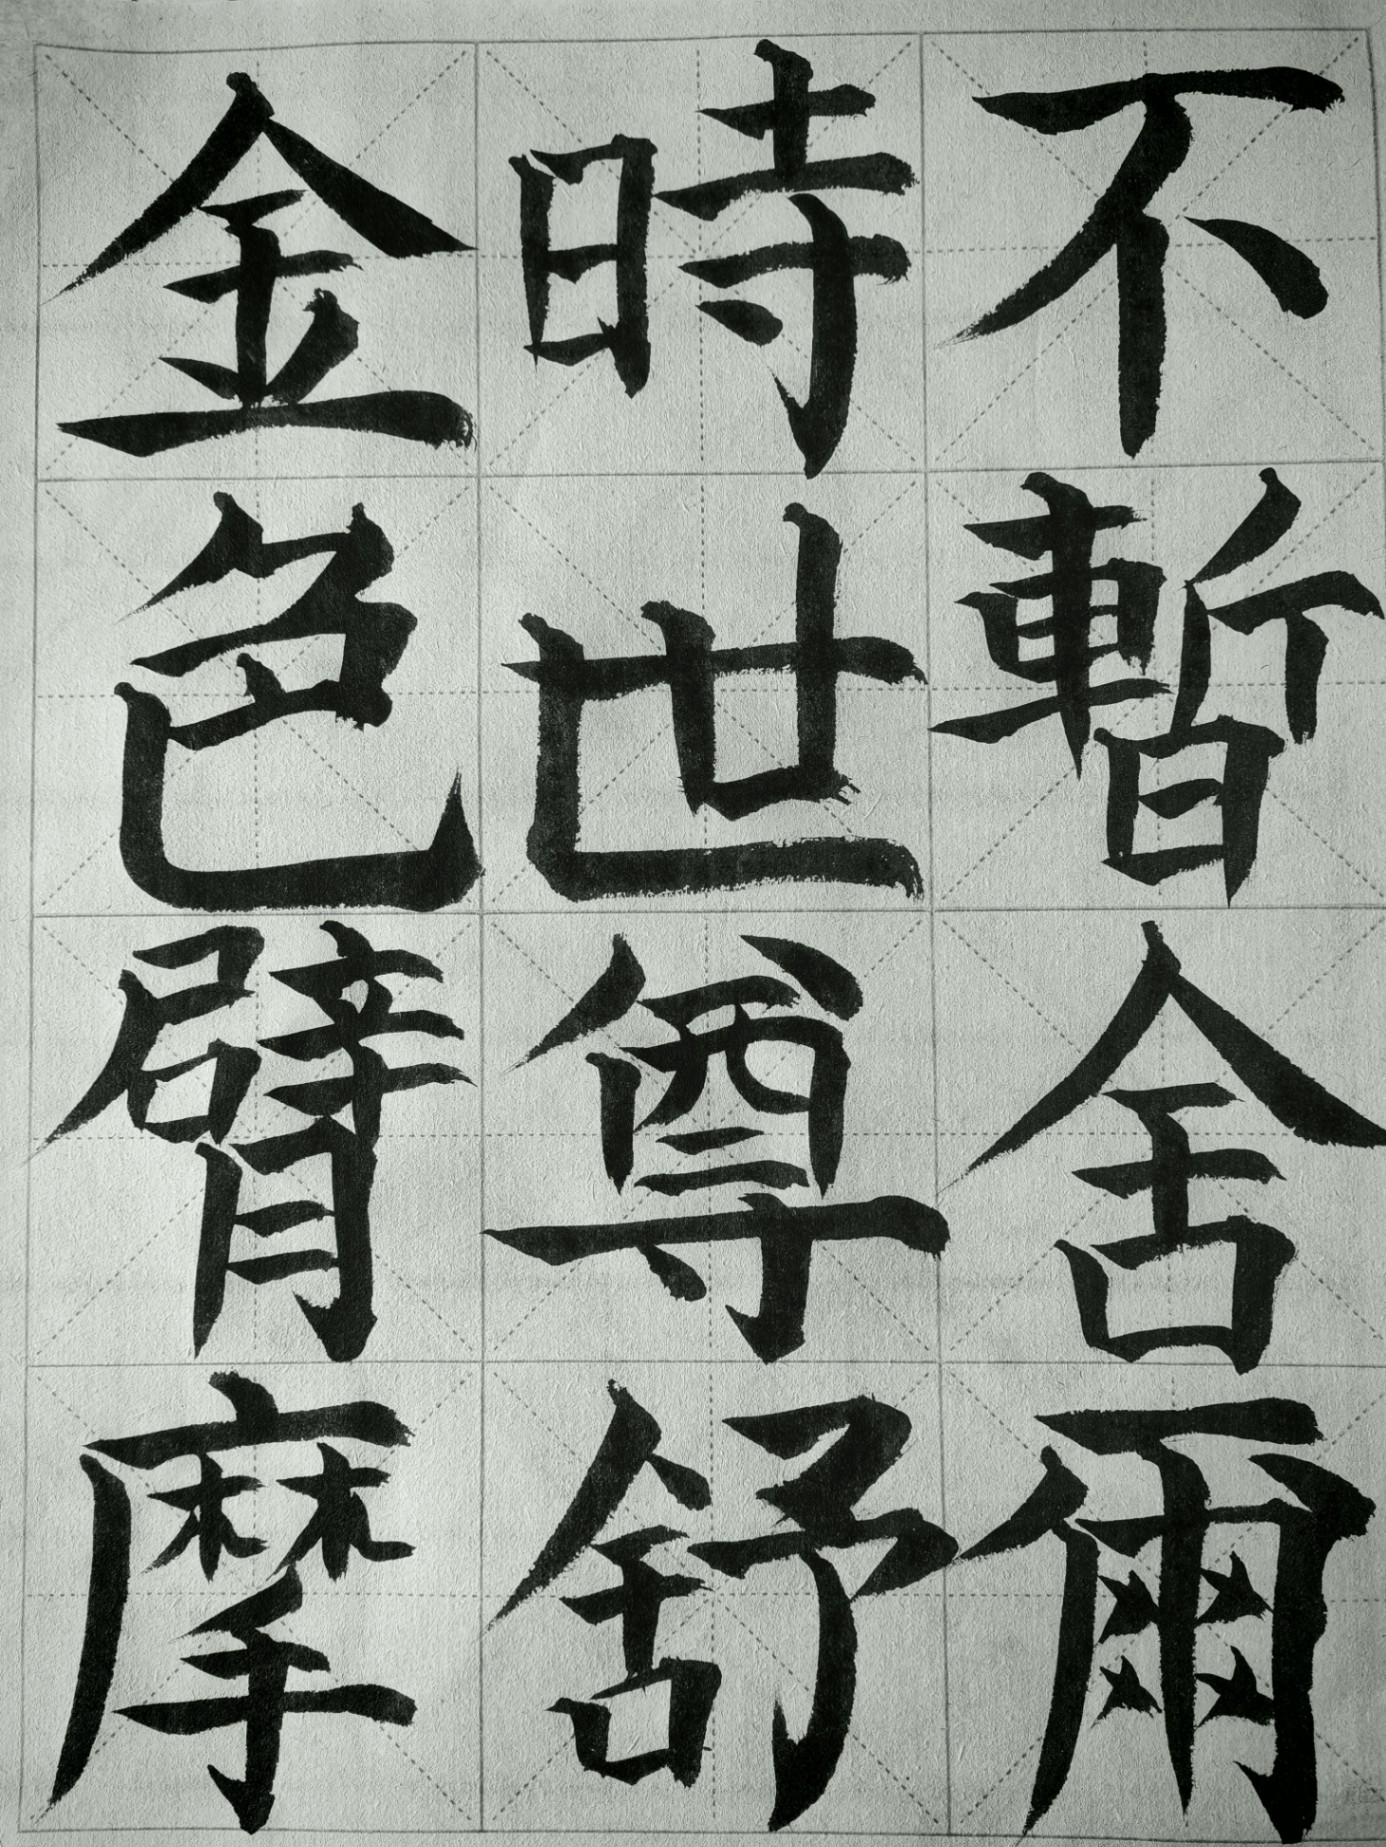 不暫舍爾
時世尊舒
金色臂摩